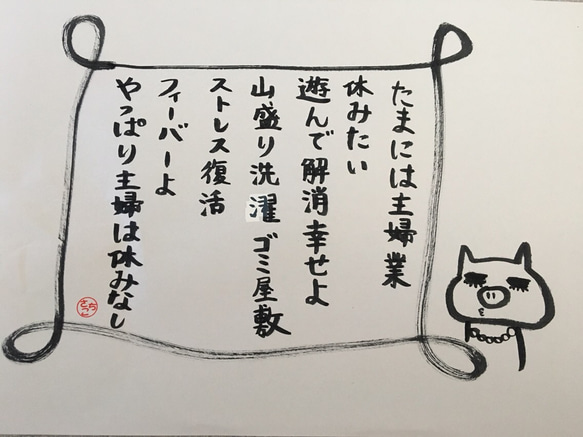 たまには主婦業
休みたい
遊んで解消幸せよ
山盛り洗濯ゴミ屋敷
ストレス復活
フィーバーよ
やっぱり主婦は休みなし